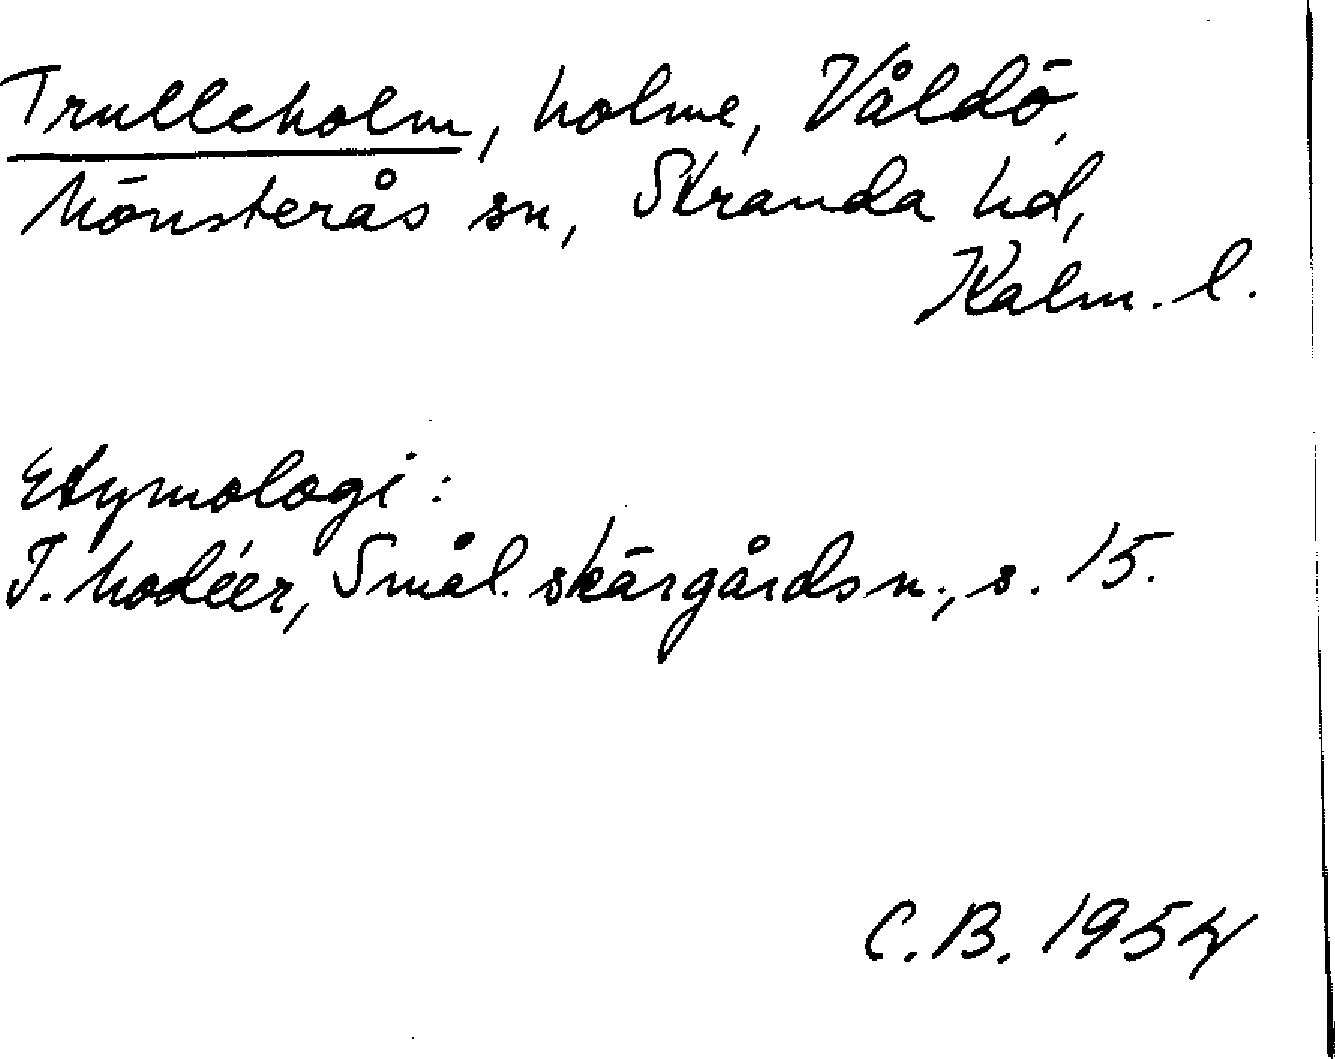 Trulleholm, holme, Våldö,
Mönsterås sn, Stranda hd,
Kalm. l.
Etymologi:
I. Modéer, Smål. skärgårdsn., s. 15.
C.B. 1954